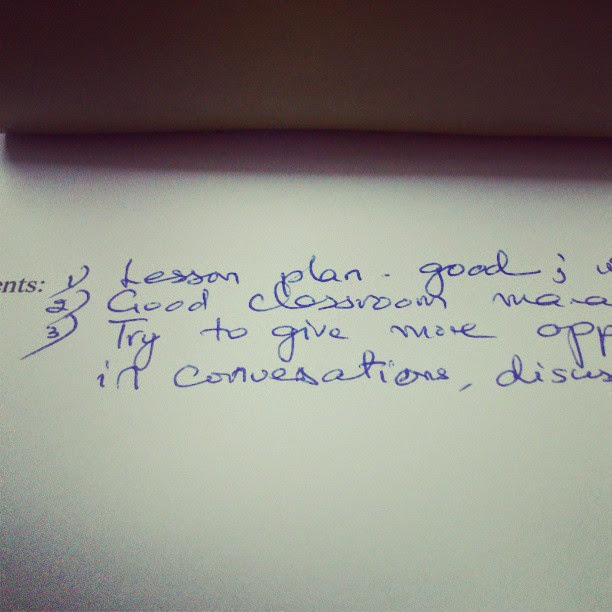 ents: 1) Lesson plan - good ;
2) Good classroom mana
3) Try to give more opp
in conversations, discus